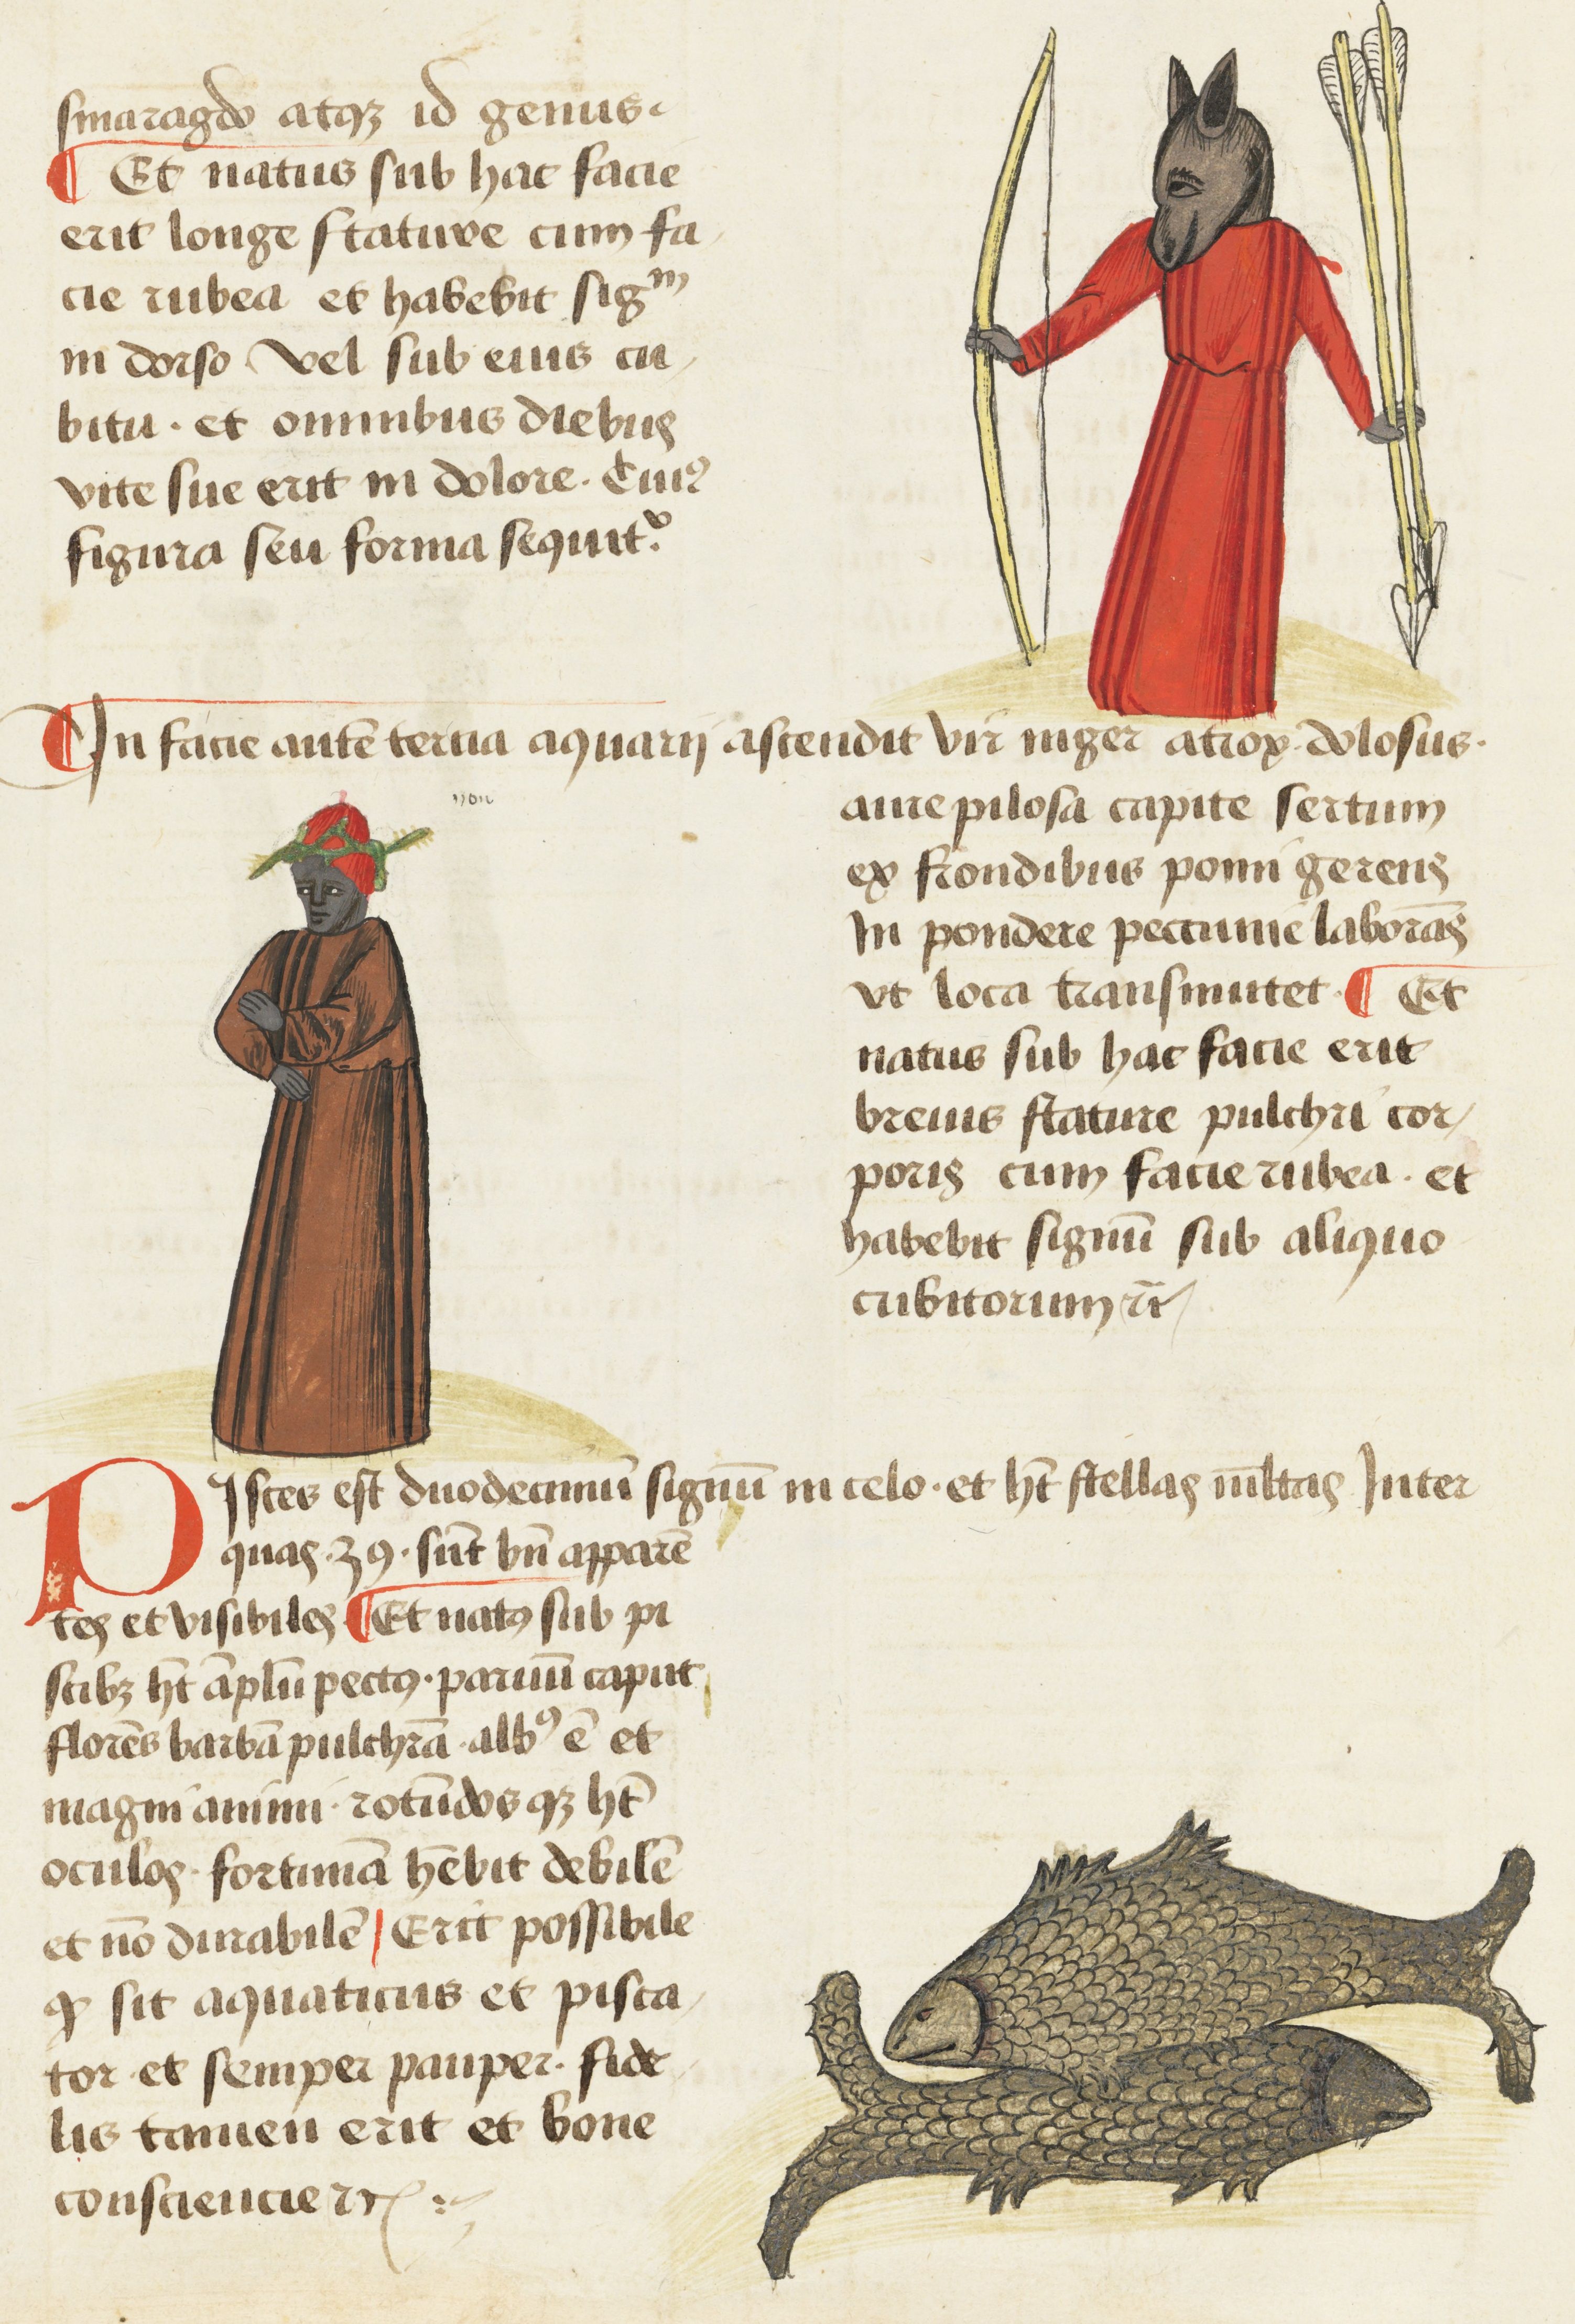 smaragdo atqꝫ id genus.
¶ Et natus sub hac facie
erit longe stature cum fa
cie rubea et habebit sigᵐ
in dorso vel sub eius cu
bitu . et omnibus diebus
vite sue erit in dolore . Cuiꝰ
figura seu forma sequit᷑.
¶ In facie autē tercia aquarij ascendit vir niger atrox dolosus .
aure pilosa capite sertum
ex frondibus pomi gerens
In pondere peccunie laborās
vt loca transmutet . ¶ Et
natus sub hac facie erit
breuis stature pulchri cor
poris cum facie rubea . et
habebit signū sub aliquo
cubitorum ꝛc̄
PIsces est duodecimū signū in celo . et hꝫt stellas m̄ltas Inter
quas . 39 . sūt bn̄ apparē
tes et visibiles ¶ Et natꝰ sub pi
scibꝫ hꝫt āplū pectꝰ . paruū caput
florēs barbā pulchrā . albꝰ ē et
magni animi . rotūdos qꝫ hꝫt
oculos . fortunā hēbit debilē
et nō durabilē | Erit possibile
ꝙ sit aquaticus et pisca
tor et semper pauper . fide
lis tamen erit et bone
consciencie ꝛc